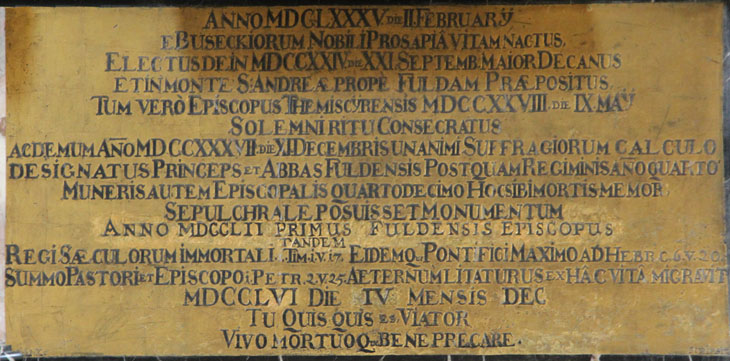 ANNO MDCLXXXV. DIE II. FEBRUARY̋
E BUSECKIORUM NOBILI PROSAPIÂ VITAM NACTUS,
ELECTUS DEIN MDCCXXIV. DIE XXI. SEPTEMB. MAIOR DECANUS
ET IN MONTE S: ANDREÆ PROPE FULDAM PRÆPOSITUS,
TUM VERÒ EPISCOPUS THEMISCYRENSIS MDCCXXVIII. DIE IX MAY̋
SOLEMNI RITU CONSECRATUS
AC DEMUM AÑO MDCCXXXVII. DIE DECEMBRIS UNANIMI SUFFRAGIORUM CALCULO
DESIGNATUS PRINCEPS ET ABBAS FULDENSIS POSTQUAM REGIMINIS AÑO QUARTO
MUNERIS AUTEM EPISCOPALIS QUARTO DECIMO HOC SIBI MORTIS MEMOR
SEPULCHRALE POSUISSET MONUMENTUM
ANNO MDCCLII PRIMUS FULDENSIS EPISCOPUS
TANDEM
REGI SÆCULORUM IMMORTALI. 1. TIM. 1. V. 17. EIDEMQ. PONTIFICI MAXIMO AD HEBR. C. 6. V. 20.
SUMMO PASTORI ET EPISCOPO 1. PETR. 2. V. 25. AETERNUM LITATURUS EX HAC VITA MIGRAVIT
MDCCLVI DIE IV MENSIS DEC
TU QUISQUIS ES VIATOR
VIVO MORTUOQ. BENE PRECARE.